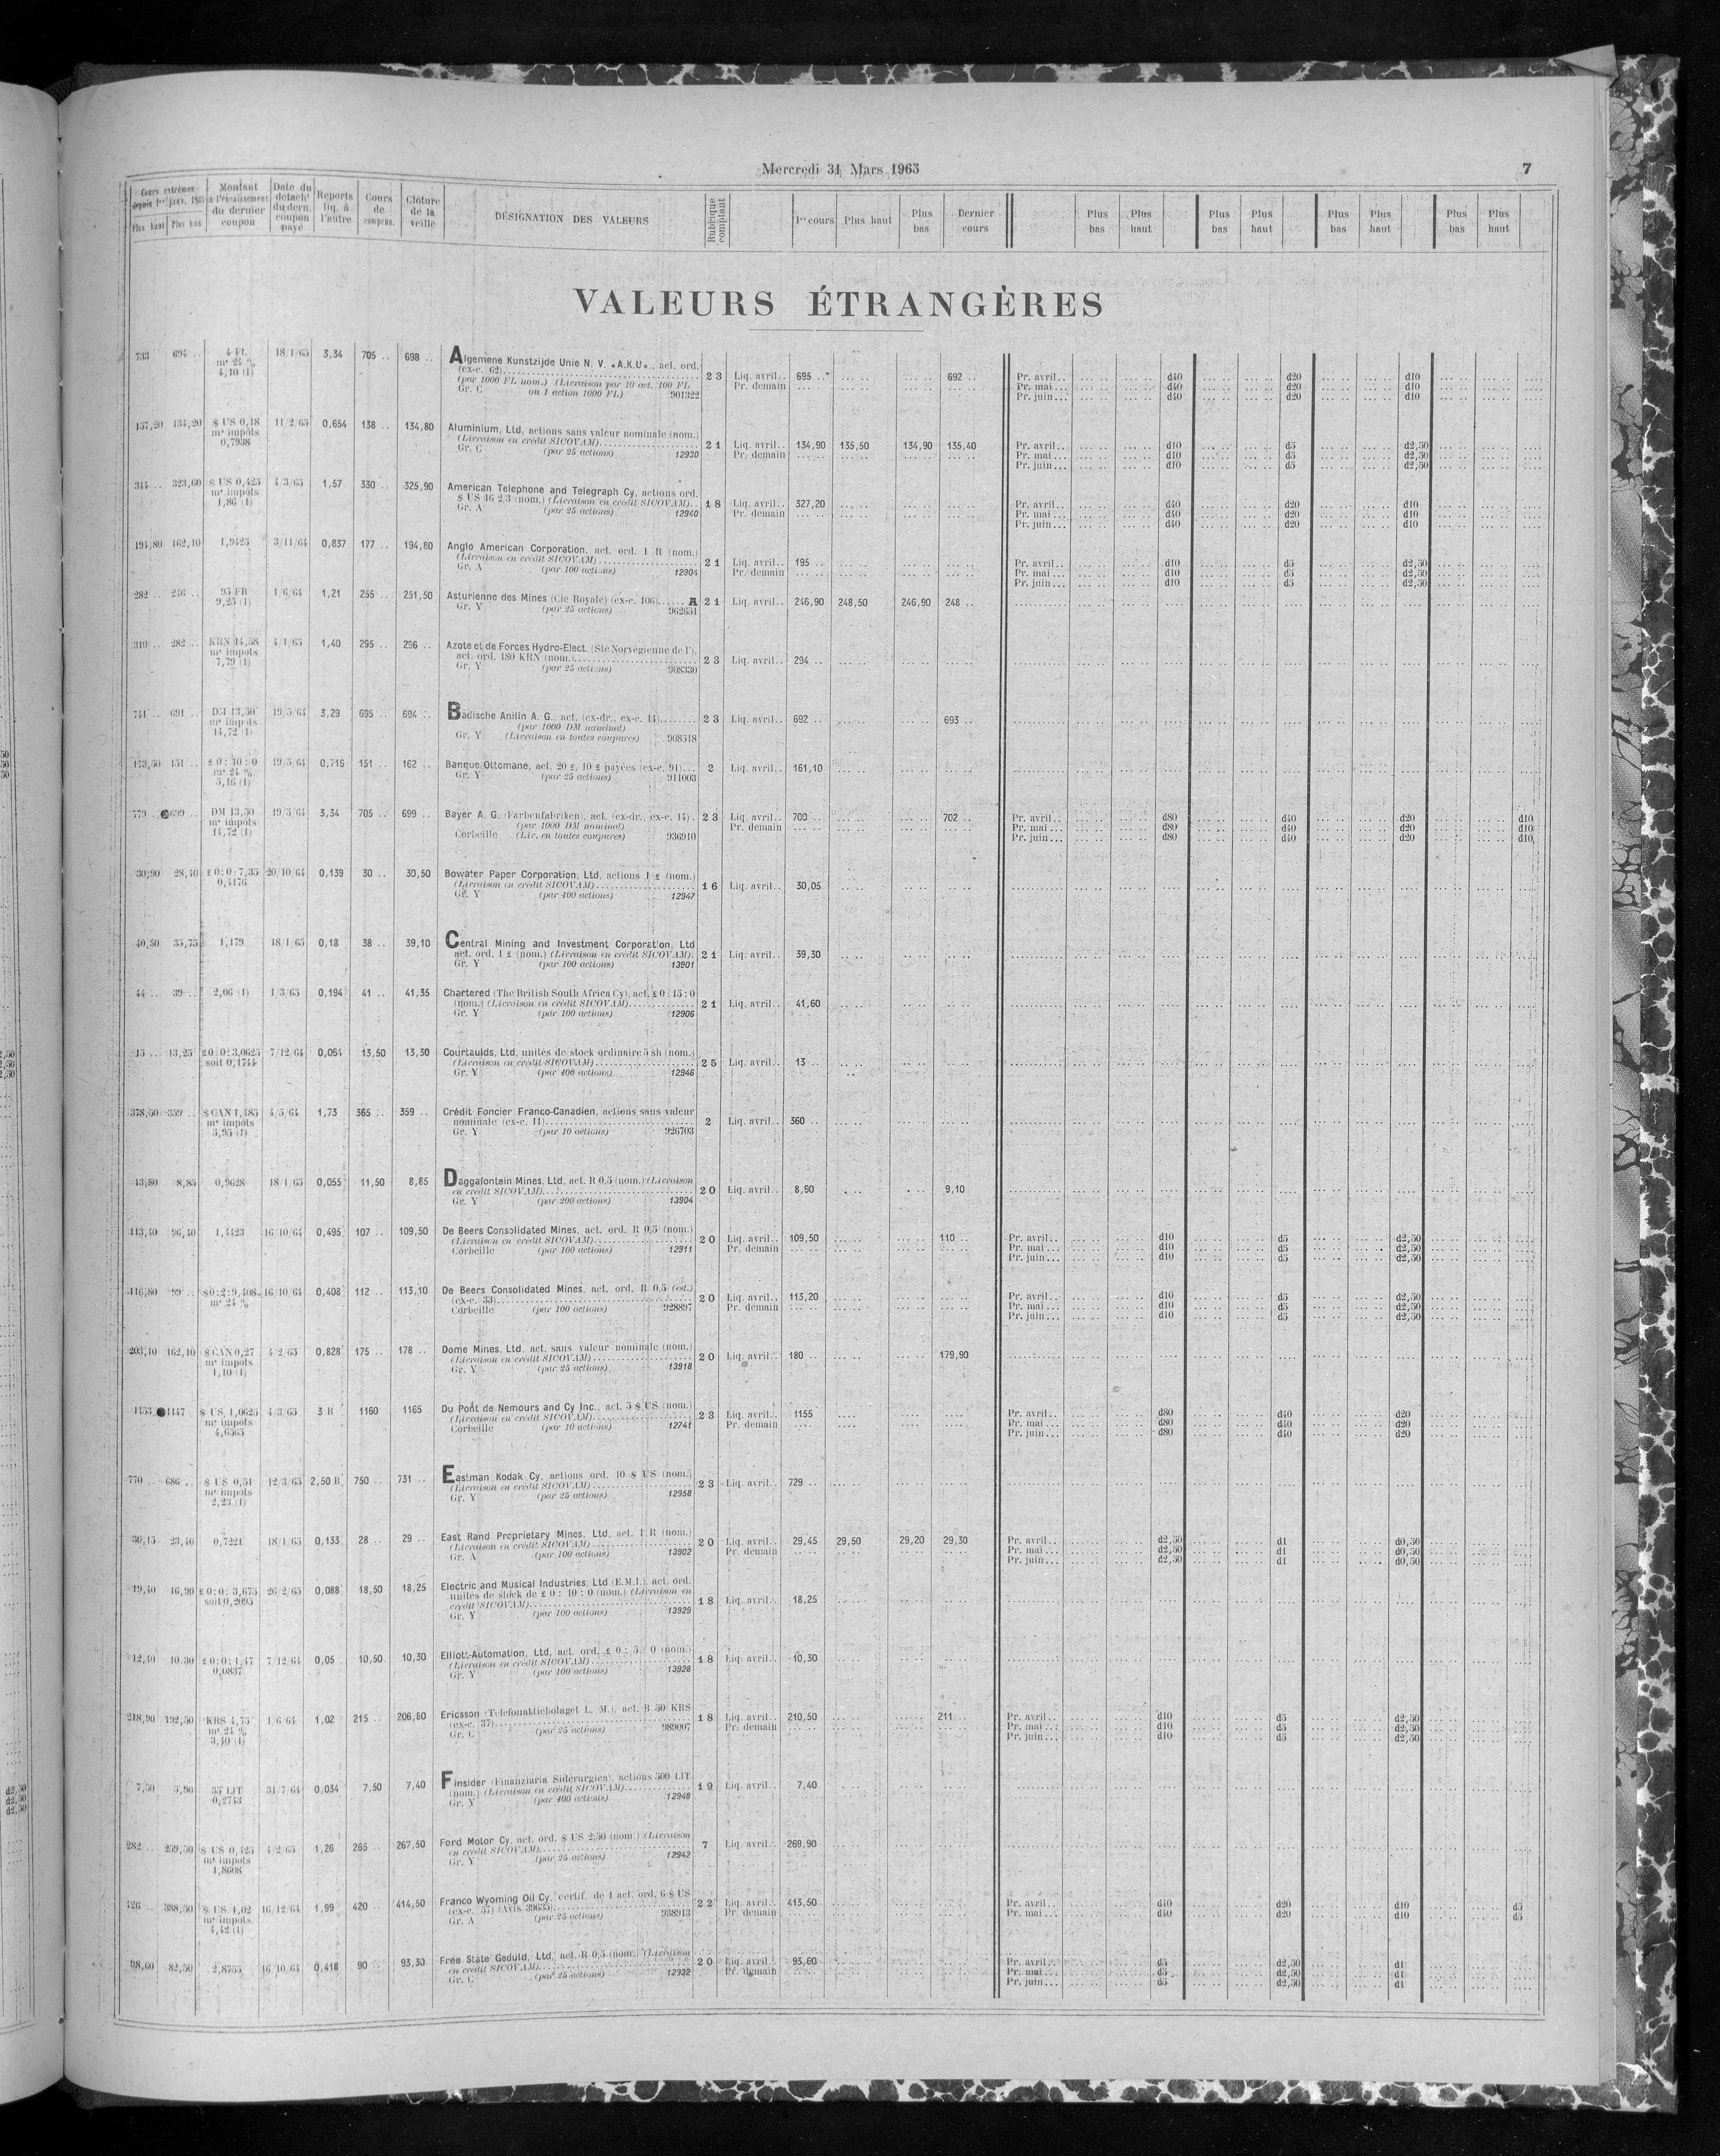 Mercredi 31 Mars 1965
7
Cours extrêmes depuis 1er janv. 1965 Plus haut Plus bas
Montant à l'encaissement du dernier coupon
Date du détacht du dern. coupon payé
Reports liq. à l'autre
Cours de compens.
Clôture de la veille
DÉSIGNATION DES VALEURS
Rubrique comptant
1er cours Plus haut Plus bas Dernier cours
Plus bas Plus haut Plus bas Plus haut Plus bas Plus haut Plus bas Plus haut
VALEURS ÉTRANGÈRES
733 694 .. 4 FL 18/1/65 3,34 705 .. 698 .. Algemene Kunstzijde Unie N. V. «A.K.U»., act. ord.
ms 24 % (ex-c. 62)
4,10 (1) (par 1000 FL nom.) (Livraison par 10 act. 100 FL 23 Liq. avril.. 695 .. 692 .. Pr. avril.. d40 d20 d10
Gr. C ou 1 action 1000 FL) 901322 Pr. demain Pr. mai... d40 d20 d10
Pr. juin... d40 d20 d10
137,20 134,20 $ US 0,18 11/2/65 0,654 138 .. 134,80 Aluminium, Ltd, actions sans valeur nominale (nom.)
ms impôts (Livraison en crédit SICOVAM)
0,7938 Gr. C (par 25 actions) 12930 21 Liq. avril.. 134,90 135,50 134,90 135,40 Pr. avril.. d10 d5 d2,50
Pr. demain Pr. mai... d10 d5 d2,50
Pr. juin... d10 d5 d2,50
344 .. 323,60 $ US 0,425 4/3/65 1,57 330 .. 325,90 American Telephone and Telegraph Cy, actions ord.
ms impôts $ US 16 2/3 (nom.) (Livraison en crédit SICOVAM).. 18 Liq. avril.. 327,20 Pr. avril.. d40 d20 d10
1,86 (1) Gr. A (par 25 actions) 12940 Pr. demain Pr. mai... d40 d20 d10
Pr. juin... d40 d20 d10
194,80 162,10 1,9425 3/11/64 0,837 177 .. 194,80 Anglo American Corporation, act. ord. 1 R (nom.)
(Livraison en crédit SICOVAM) 21 Liq. avril.. 195 .. Pr. avril.. d10 d5 d2,50
Gr. A (par 100 actions) 12904 Pr. demain Pr. mai... d10 d5 d2,50
Pr. juin... d10 d5 d2,50
282 .. 246 .. 95 FB 1/6/64 1,21 255 .. 251,50 Asturienne des Mines (Cie Royale) (ex-c. 106) A 21 Liq. avril.. 246,90 248,50 246,90 248 ..
9,25 (1) Gr. Y (par 25 actions) 962651
310 .. 282 .. KRN 14,58 4/1/65 1,40 295 .. 296 .. Azote et de Forces Hydro-Elect. (Sté Norvégienne de l'),
ms impôts act. ord. 180 KRN (nom.) 23 Liq. avril.. 294 ..
7,79 (1) Gr. Y (par 25 actions) 908330
741 .. 691 .. DM 13,50 19/5/64 3,29 695 .. 694 .. Badische Anilin A. G., act. (ex-dr., ex-c. 14) 23 Liq. avril.. 692 .. 693 ..
ms impôts (par 1000 DM nominal)
14,72 (1) Gr. Y (Livraison en toutes coupures) 908518
173,50 151 .. £ 0 : 10 : 0 19/5/64 0,716 151 .. 162 .. Banque Ottomane, act. 20 £, 10 £ payées (ex-c. 91) 2 Liq. avril.. 161,10
ms 24 % Gr. Y (par 25 actions) 911003
5,16 (1)
779 .. 699 .. DM 13,50 19/5/64 3,34 705 .. 699 .. Bayer A. G. (Farbenfabriken), act. (ex-dr., ex-c. 14). 23 Liq. avril.. 700 .. 702 .. Pr. avril.. d80 d40 d20 d10
ms impôts (par 1000 DM nominal) Pr. demain Pr. mai... d80 d40 d20 d10
14,72 (1) Corbeille (Liv. en toutes coupures) 936910 Pr. juin... d80 d40 d20 d10
30,90 28,40 £ 0 : 0 : 7,35 20/10/64 0,139 30 .. 30,50 Bowater Paper Corporation, Ltd, actions 1 £ (nom.)
0,4176 (Livraison en crédit SICOVAM) 16 Liq. avril.. 30,05
Gr. Y (par 100 actions) 12947
40,50 35,75 1,179 18/1/65 0,18 38 .. 39,10 Central Mining and Investment Corporation, Ltd
act. ord. 1 £ (nom.) (Livraison en crédit SICOVAM). 21 Liq. avril.. 39,30
Gr. Y (par 100 actions) 13901
44 .. 39 .. 2,06 (1) 1/3/65 0,194 41 .. 41,35 Chartered (The British South Africa Cy), act. £ 0 : 15 : 0
(nom.) (Livraison en crédit SICOVAM) 21 Liq. avril.. 41,60
Gr. Y (par 100 actions) 12906
15 .. 13,25 £ 0 : 0 : 3,0625 7/12/64 0,064 13,50 13,30 Courtaulds, Ltd, unités de stock ordinaire 5 sh (nom.)
soit 0,1744 (Livraison en crédit SICOVAM) 25 Liq. avril.. 13 ..
Gr. Y (par 100 actions) 12946
378,50 359 .. $ CAN 1,485 4/5/64 1,73 365 .. 359 .. Crédit Foncier Franco-Canadien, actions sans valeur
ms impôts nominale (ex-c. 11) 2 Liq. avril.. 360 ..
5,95 (1) Gr. Y (par 10 actions) 926703
13,80 8,85 0,9628 18/1/65 0,055 11,50 8,85 Daggafontein Mines, Ltd, act. R 0,5 (nom.) (Livraison
en crédit SICOVAM) 20 Liq. avril.. 8,90 9,10
Gr. Y (par 200 actions) 13904
113,40 96,40 1,4423 16/10/64 0,495 107 .. 109,50 De Beers Consolidated Mines, act. ord. R 0,5 (nom.)
(Livraison en crédit SICOVAM) 20 Liq. avril.. 109,50 110 .. Pr. avril.. d10 d5 d2,50
Corbeille (par 100 actions) 12911 Pr. demain Pr. mai... d10 d5 d2,50
Pr. juin... d10 d5 d2,50
116,80 99 .. $ 0 : 2 : 9,408 16/10/64 0,408 112 .. 113,10 De Beers Consolidated Mines, act. ord. R 0,5 (est.)
ms 24 % (ex-c. 33) 20 Liq. avril.. 113,20 Pr. avril.. d10 d5 d2,50
Corbeille (par 100 actions) 928897 Pr. demain Pr. mai... d10 d5 d2,50
Pr. juin... d10 d5 d2,50
203,10 162,10 $ CAN 0,27 4/2/65 0,828 175 .. 178 .. Dome Mines, Ltd, act. sans valeur nominale (nom.)
ms impôts (Livraison en crédit SICOVAM) 20 Liq. avril.. 180 .. 179,90
1,10 (1) Gr. Y (par 25 actions) 13918
1433 1147 $ US 1,0625 4/3/65 3 B 1160 1165 Du Pont de Nemours and Cy Inc., act. 5 $ US (nom.)
ms impôts (Livraison en crédit SICOVAM) 23 Liq. avril.. 1155 Pr. avril.. d80 d40 d20
4,6565 Corbeille (par 10 actions) 12741 Pr. demain Pr. mai... d80 d40 d20
Pr. juin... d80 d40 d20
770 .. 686 .. $ US 0,51 12/3/65 2,50 B 750 .. 731 .. Eastman Kodak Cy, actions ord. 10 $ US (nom.)
ms impôts (Livraison en crédit SICOVAM) 23 Liq. avril.. 729 ..
2,23 (1) Gr. Y (par 25 actions) 12958
30,15 23,40 0,7221 18/1/65 0,133 28 .. 29 .. East Rand Proprietary Mines, Ltd, act. 1 R (nom.)
(Livraison en crédit SICOVAM) 20 Liq. avril.. 29,45 29,50 29,20 29,30 Pr. avril.. d2,50 d1 d0,50
Gr. A (par 100 actions) 13902 Pr. demain Pr. mai... d2,50 d1 d0,50
Pr. juin... d2,50 d1 d0,50
19,40 16,90 £ 0 : 0 : 3,675 26/2/65 0,088 18,50 18,25 Electric and Musical Industries, Ltd (E.M.I.), act. ord.
soit 0,2095 unités de stock de £ 0 : 10 : 0 (nom.) (Livraison en
crédit SICOVAM) 18 Liq. avril.. 18,25
Gr. Y (par 100 actions) 13929
12,40 10,30 £ 0 : 0 : 1,47 7/12/64 0,05 10,50 10,30 Elliott-Automation, Ltd, act. ord. £ 0 : 5 : 0 (nom.)
0,0837 (Livraison en crédit SICOVAM) 18 Liq. avril.. 10,30
Gr. Y (par 100 actions) 13928
218,90 192,50 KRS 4,75 1/6/64 1,02 215 .. 206,80 Ericsson (Telefonaktiebolaget L. M.), act. B 50 KRS
ms 24 % (ex-c. 37) 18 Liq. avril.. 210,50 211 .. Pr. avril.. d10 d5 d2,50
3,40 (1) Gr. C (par 25 actions) 989007 Pr. demain Pr. mai... d10 d5 d2,50
Pr. juin... d10 d5 d2,50
7,50 5,90 35 LIT 31/7/64 0,034 7,50 7,40 Finsider (Finanziaria Siderurgica), actions 500 LIT
0,2743 (nom.) (Livraison en crédit SICOVAM) 19 Liq. avril.. 7,40
Gr. Y (par 100 actions) 12948
282 .. 259,50 $ US 0,425 4/2/65 1,26 265 .. 267,50 Ford Motor Cy, act. ord. $ US 2,50 (nom.) (Livraison
ms impôts en crédit SICOVAM) 7 Liq. avril.. 269,90
1,8608 Gr. Y (par 25 actions) 12942
426 .. 388,50 $ US 1,02 16/12/64 1,99 420 .. 414,50 Franco Wyoming Oil Cy, certif. de 1 act. ord. 6 $ US
ms impôts (ex-c. 57) (Avis 39635) 22 Liq. avril.. 413,50 Pr. avril.. d40 d20 d10 d5
4,42 (1) Gr. A (par 25 actions) 938913 Pr. demain Pr. mai... d40 d20 d10 d5
98,60 82,50 2,8755 16/10/64 0,418 90 .. 93,30 Free State Geduld, Ltd, act. R 0,5 (nom.) (Livraison
en crédit SICOVAM) 20 Liq. avril.. 93,60 Pr. avril.. d5 d2,50 d1
Gr. C (par 25 actions) 12932 Pr. demain Pr. mai... d5 d2,50 d1
Pr. juin... d5 d2,50 d1